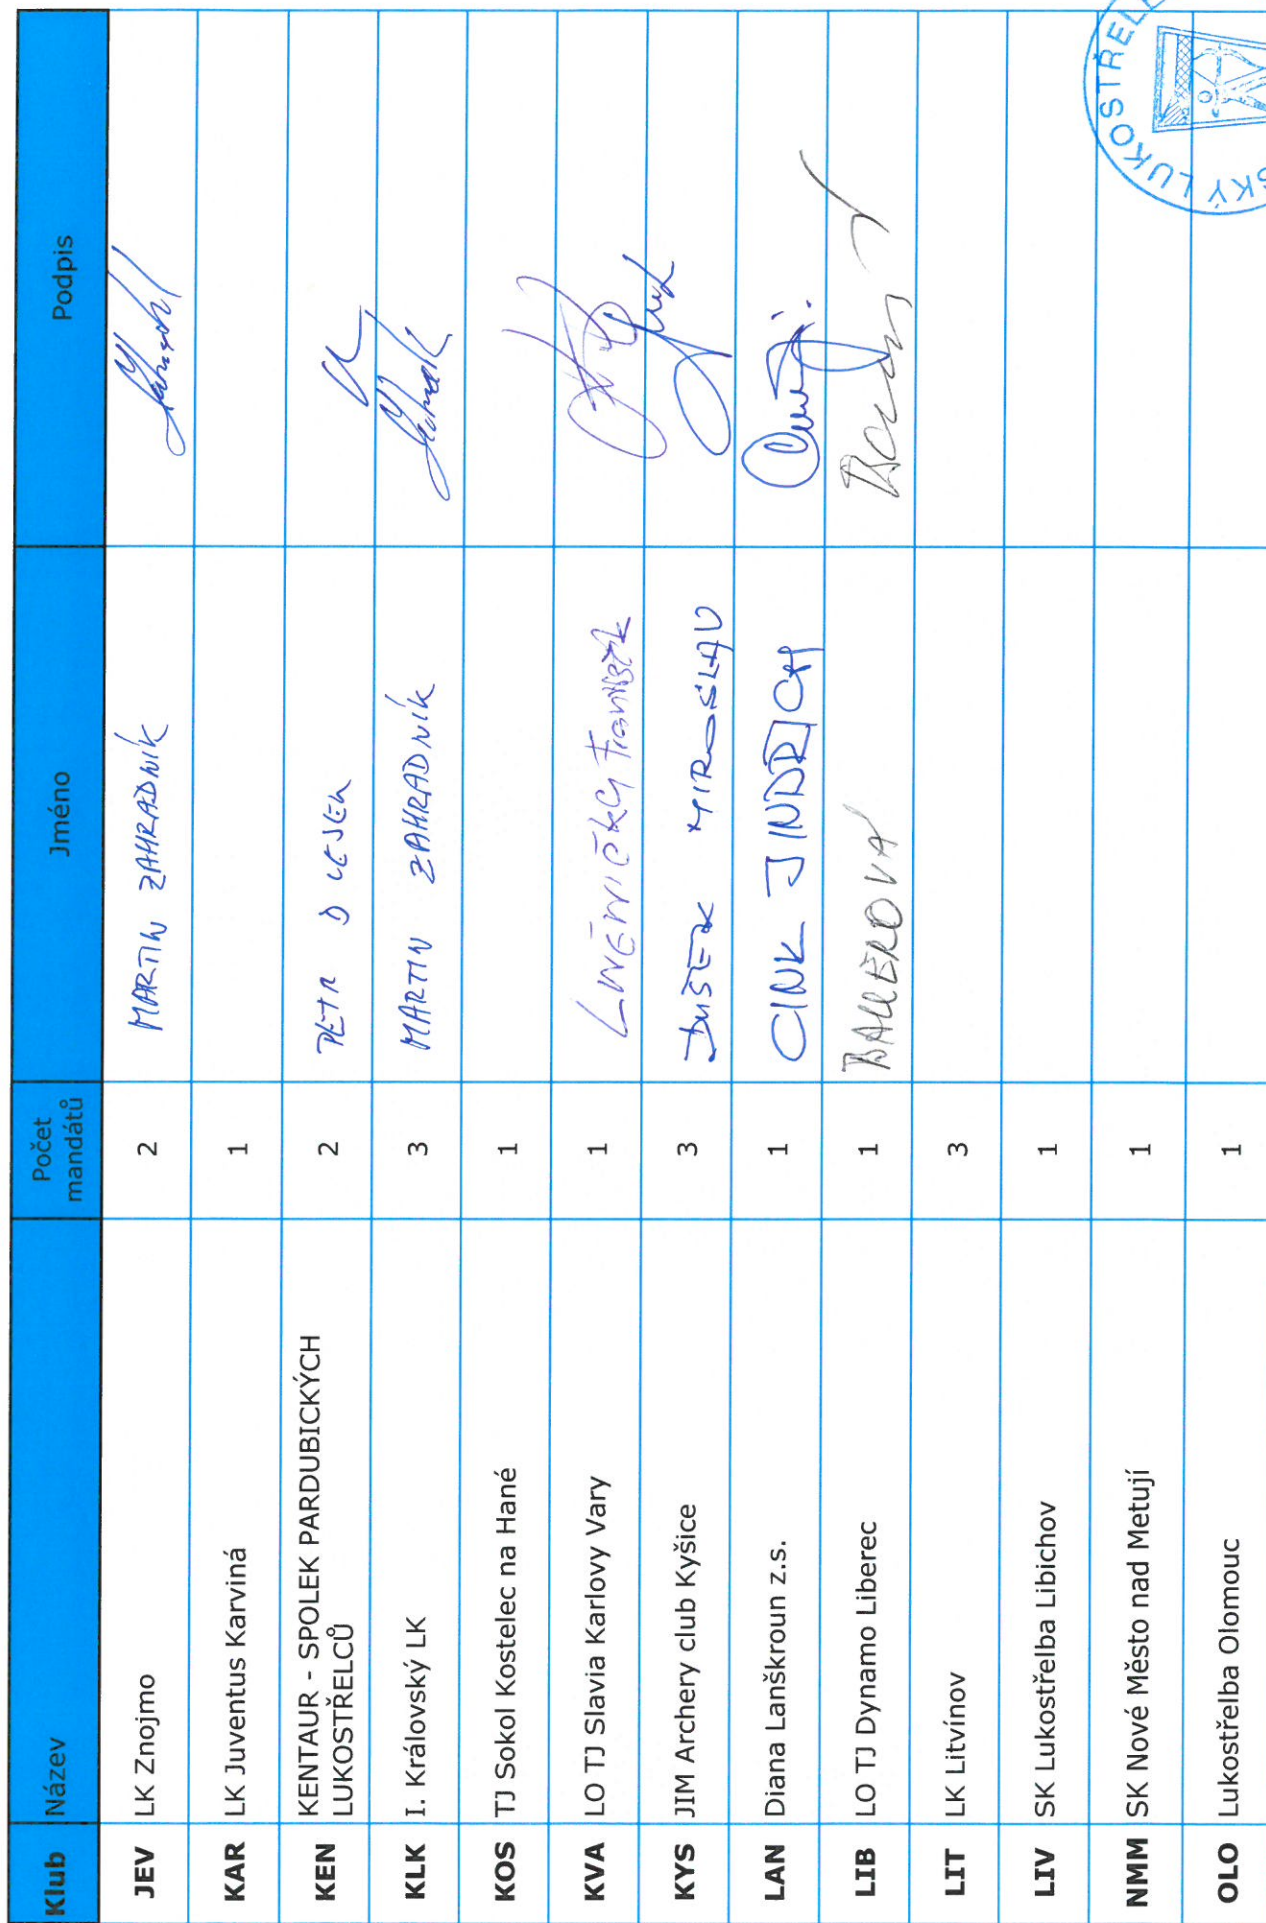 Klub Název Počet mandátů Jméno Podpis
JEV LK Znojmo 2 MARTIN ZAHRADNÍK
KAR LK Juventus Karviná 1
KEN KENTAUR - SPOLEK PARDUBICKÝCH
LUKOSTŘELCŮ 2 PETR
KLK I. Královský LK 3 MARTIN ZAHRADNÍK
KOS TJ Sokol Kostelec na Hané 1
KVA LO TJ Slavia Karlovy Vary 1 František
KYS JIM Archery club Kyšice 3 DUŠEK MIROSLAV
LAN Diana Lanškroun z.s. 1 CINK JINDŘICH
LIB LO TJ Dynamo Liberec 1 BAUEROVÁ
LIT LK Litvínov 3
LIV SK Lukostřelba Libichov 1
NMM SK Nové Město nad Metují 1
OLO Lukostřelba Olomouc 1